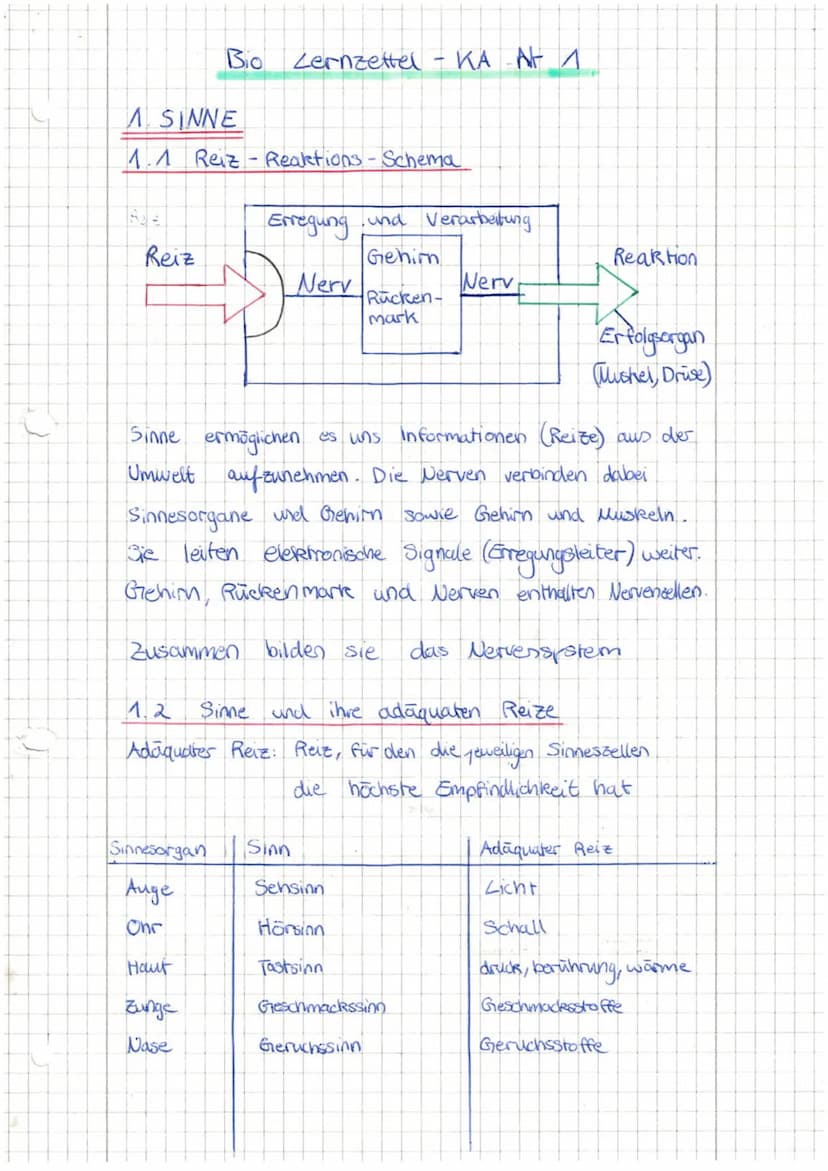 Bio Lernzettel - KA Nr 1
1. SINNE
1.1 Reiz - Reaktions - Schema
Erregung und Verarbeitung
Reiz
Nerv
Gehirn
Rücken-
mark
Nerv
Reaktion
Erfolgsorgan
(Muskel, Drüse)
Sinne ermöglichen es uns Informationen (Reize) aus der
Umwelt aufzunehmen. Die Nerven verbinden dabei
Sinnesorgane und Gehirn sowie Gehirn und Muskeln.
Sie leiten elektronische Signale (Erregungsleiter) weiter.
Gehirn, Rückenmark und Nerven enthalten Nervenzellen.
Zusammen bilden sie das Nervensystem
1.2 Sinne und ihre adäquaten Reize
Adäquater Reiz: Reiz, für den die jeweiligen Sinneszellen
die höchste Empfindlichkeit hat
Sinnesorgan Sinn Adäquater Reiz
Auge Sehsinn Licht
Ohr Hörsinn Schall
Haut Tastsinn druck, berührung, wärme
Zunge Geschmackssinn Geschmacksstoffe
Nase Geruchssinn Geruchsstoffe